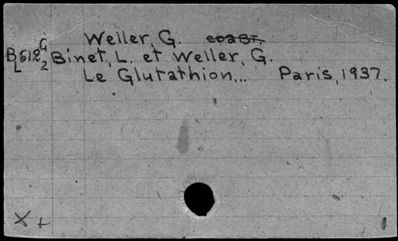 Weller, G.
B612 G2 Binet, L. et Weller, G.
L Le Glutathion... Paris, 1937.
X +